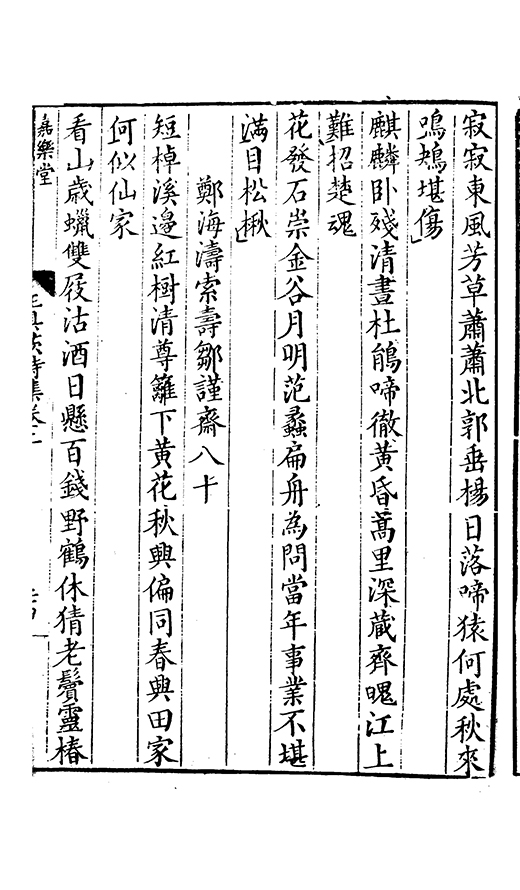 寂寂東風芳草蕭蕭北郭垂楊日落啼猿何處秋來
鳴鴂堪傷
麒麟卧殘清晝杜鵑啼徹黃昏蒿里深藏齊䰟江上
難招楚魂
花發石崇金谷月明范蠡扁舟為問當年事業不堪
滿目松楸
鄭海濤索壽鄒謹齋八十
短棹溪邊紅樹清尊籬下黃花秋興偏同春興田家
何似仙家
看山歲蠟雙屐沽酒日懸百錢野鶴休猜老鬢靈椿
嘉樂堂